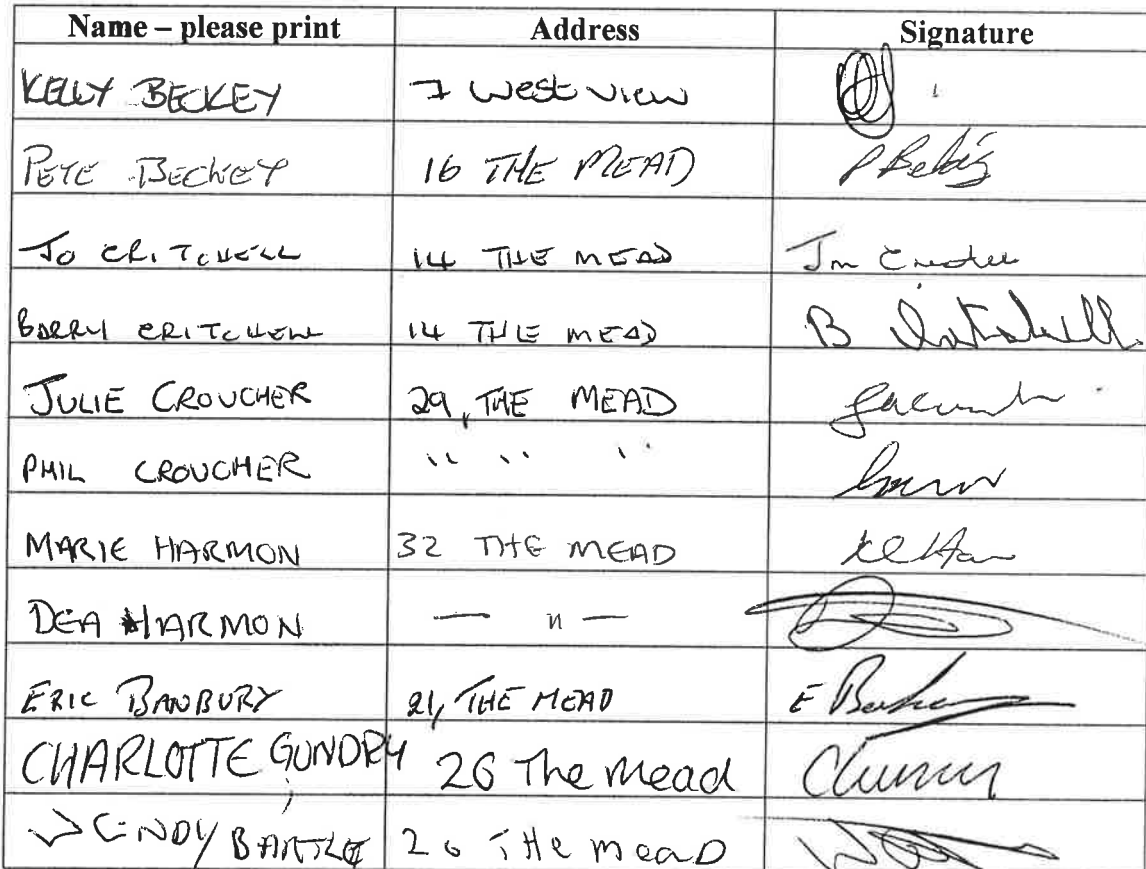 Name – please print Address Signature
KELLY BECKEY 7 West View
PETE BECKEY 16 THE MEAD
JO CRITCHELL 14 THE MEAD
BARRY CRITCHELL 14 THE MEAD B
JULIE CROUCHER 29, THE MEAD
PHIL CROUCHER " " "
MARIE HARMON 32 THE MEAD
DEA HARMON — " —
ERIC BANBURY 21, THE MEAD E
CHARLOTTE GUNDRY 26 The Mead
WENDY BARTLE 26 THe meaD